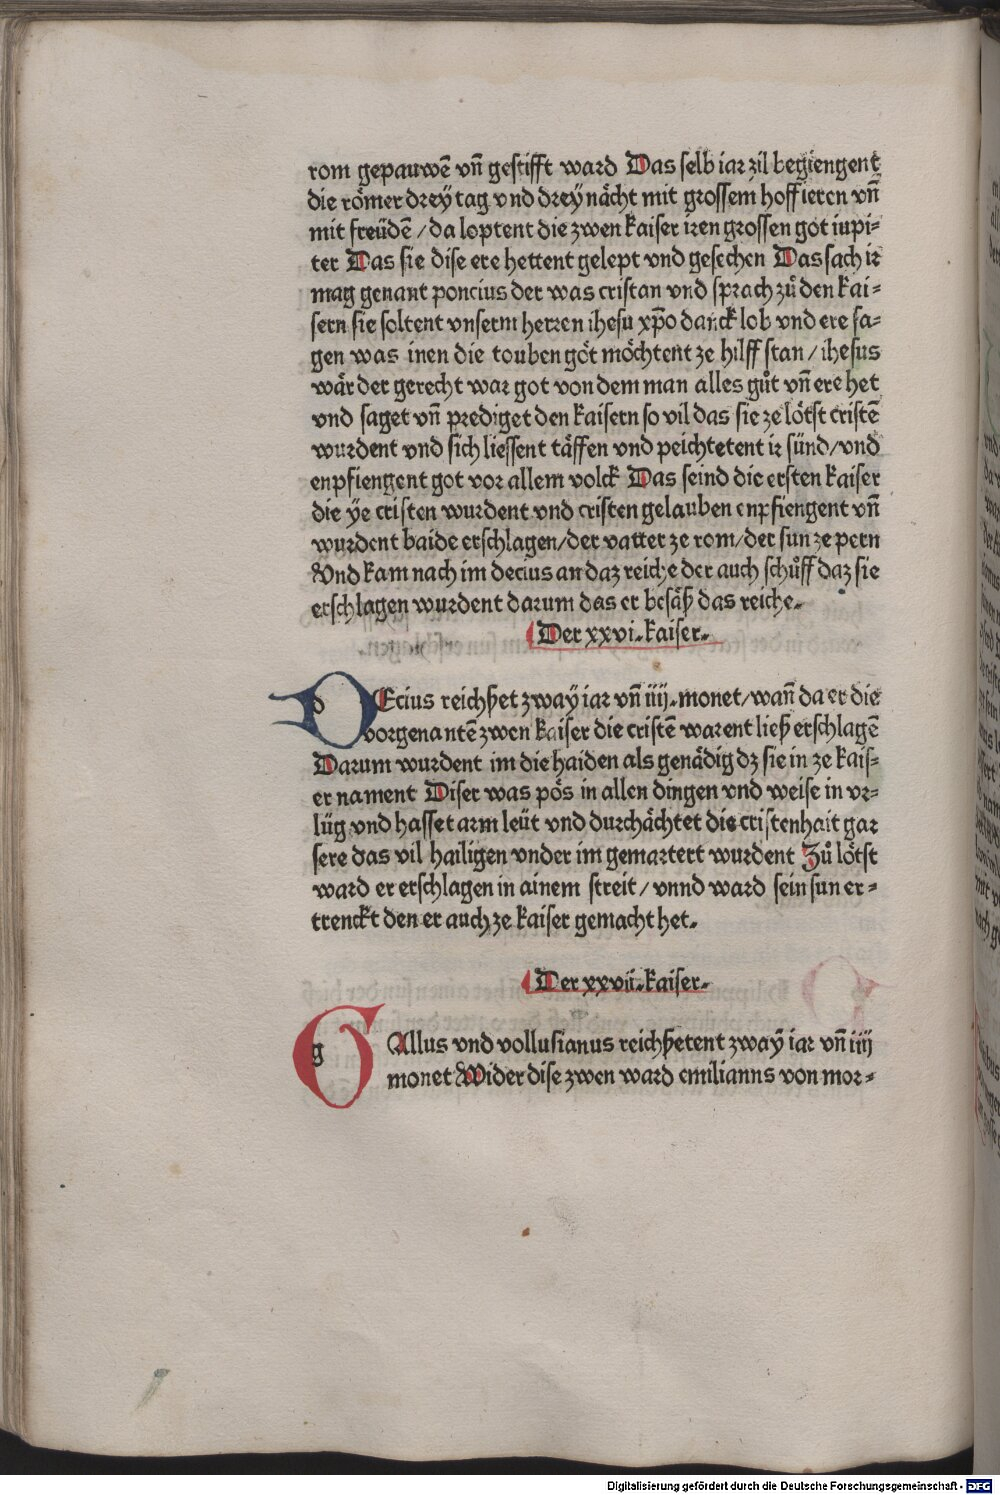 rom gepauwē vn̄ gestifft ward Das selb iar zil begiengent
die römer drey tag vnd drey nächt mit grossem hoffieren vn̄
mit freüdē / da loptent die zwen kaiser iren grossen got iupi=
ter Das sie dise ere hettent gelept vnd gesechen Das sach ir
mag genant poncius der was cristan vnd sprach zů den kai=
sern sie soltent vnserm herren ihesu xp̄o danck lob vnd ere sa=
gen was inen die touben göt möchtent ze hilff stan / ihesus
wär der gerecht war got von dem man alles gůt vn̄ ere het
vnd saget vn̄ prediget den kaisern so vil das sie ze lötst cristē
wurdent vnd sich liessent täffen vnd peichtetent ir sünd/vnd
enpfiengent got vor allem volck Das seind die ersten kaiser
die ÿe cristen wurdent vnd cristen gelauben enpfiengent vn̄
wurdent baide erschlagen/der vatter ze rom/der sun ze pern
Vnd kam nach im decius an daz reiche der auch schůff daz sie
erschlagen wurdent darum das er besäß das reiche.
Der xxvi.kaiser.
dEcius reichßet zwaÿ iar vn̄ iiij.monet/wan̄ da er die
vorgenantē zwen kaiser die cristē warent ließ erschlagē
Darum wurdent im die haiden als genädig dz sie in ze kais=
er nament Diser was pös in allen dingen vnd weise in vr=
lüg vnd hasset arm leüt vnd durchächtet die cristenhait gar
sere das vil hailigen vnder im gemartert wurdent Zů lötst
ward er erschlagen in ainem streit / vnnd ward sein sun er=
trenckt den er auch ze kaiser gemacht het.
Der xxvii.kaiser.
gAllus vnd vollusianus reichßetent zwaÿ iar vn̄ iiij
monet Wider dise zwen ward emilianns von mor=
Digitalisierung gefördert durch die Deutsche Forschungsgemeinschaft - DFG